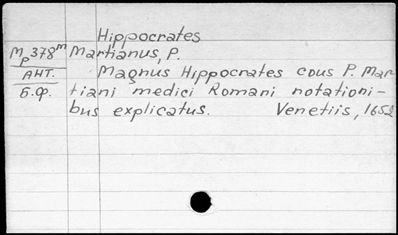 Hippocrates
Mp378m Martianus, P.
АНТ. Magnus Hippocrates cous P. Mar
Б.Ф. tiani medici Romani notationi-
bus explicatus. Venetiis, 1652